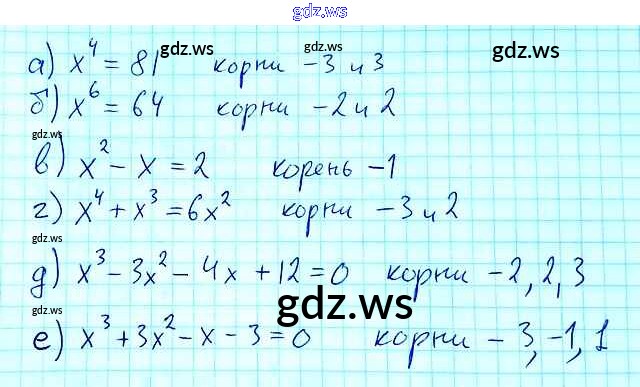 gdz.ws
gdz.ws gdz.ws gdz.ws
а) x⁴ = 81 корни -3 и 3
б) x⁶ = 64 корни -2 и 2
gdz.ws
в) x² - x = 2 корень -1
г) x⁴ + x³ = 6x² корни -3 и 2
gdz.ws
д) x³ - 3x² - 4x + 12 = 0 корни -2, 2, 3
gdz.ws gdz.ws
е) x³ + 3x² - x - 3 = 0 корни -3, -1, 1